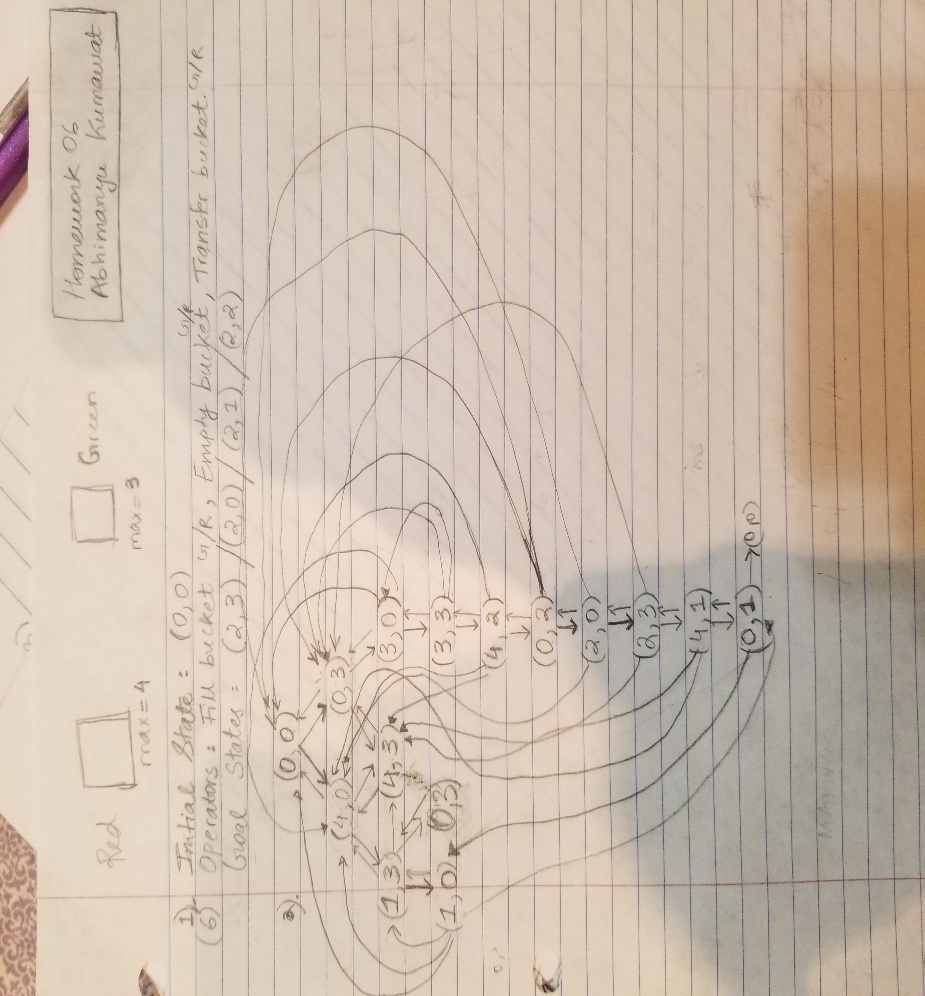 Homework 06
Abhimanyu Kumawat
Red
Green
max=4
max=3
1) Initial State : (0,0)
(6) Operators : Fill bucket G/R, Empty bucket G/R, Transfer bucket. G/R
Goal States : (2,3) / (2,0) / (2,1) / (2,2)
a).
(0,0)
(4,0) (0,3)
(1,3) (4,3) (3,0)
(1,0) (0,3) (3,3)
(4,2)
(0,2)
(2,0)
(2,3)
(4,1)
(0,1)